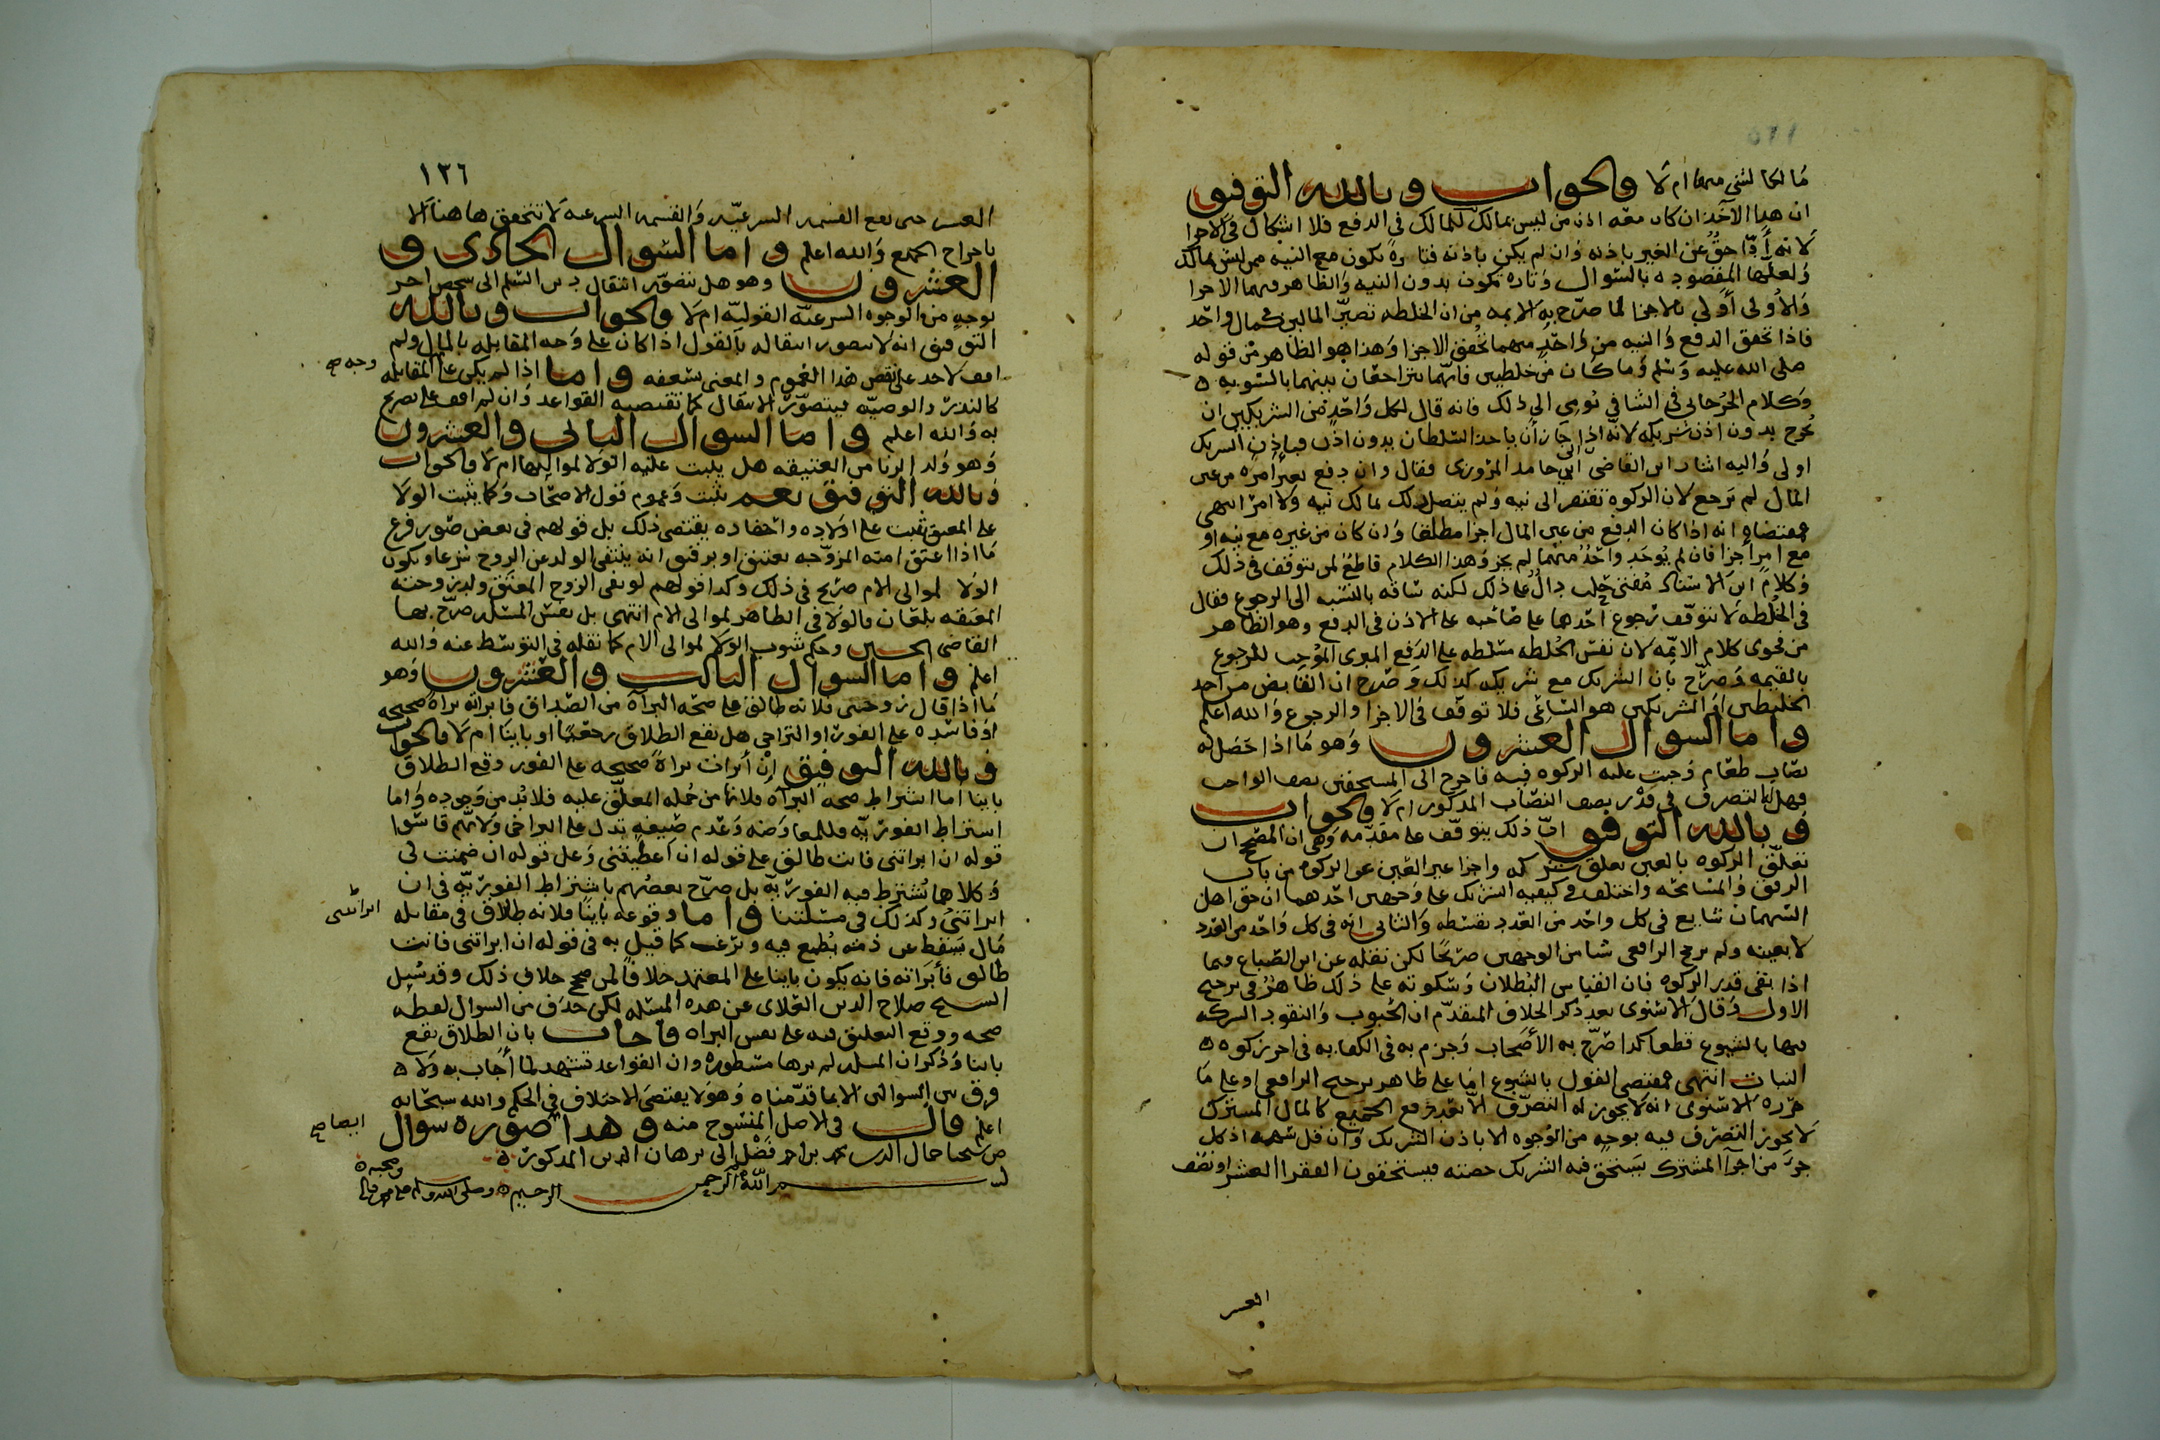 ١٢٥
مالكا لشي منها ام لا والجواب وبالله التوفيق
ان هذا الآخذ ان كان معه اذن من ليس بمالك للمالك في الدفع فلا اشكال في الاجزا
لانه أدّا حقٌّ عن الغير باذنه وان لم يكن باذنه فتارةً يكون مع النيه ممن ليس بمالك
ولعلها المقصوده بالسوال وتارة يكون بدون النيه والظاهر فيهما الاجزا
والأولى أولى بالاجزا لما صرّح به الايمه من ان الخلطه تصيّر المالين كمال واحد
فاذا تحقق الدفع والنيه من واحد منهما تحقق الاجزا وهذا هو الظاهر من قوله
صلى الله عليه وسلم وما كان من خلطين فانهما يتراجعان بينهما بالسويه ه
وكلام الجرجاني في الشافي يومي الي ذلك فانه قال لكل واحد من الشريكين ان
يخرج بدون اذن شريكه لانه اذا جاز أن ياخذ السلطان بدون اذن فباذن الشريك
اولى واليه اشار ابن القاضي ابي حامد المروزي فقال وان دفع بغير أمره من عين
المال لم يرجع لان الزكوة تفتقر الى نيه ولم يتصل ذلك بمالك نيه ولا امر انتهى
فمقتضاه انه اذا كان الدفع من عين المال اجزا مطلقا وان كان من غيره مع نيه او
مع امر أجزا فان لم يوجد واحدٌ منهما لم يجز وهذا الكلام قاطعٌ لمن يتوقف في ذلك
وكلام ابن الاستاذ مفتي حلب دالٌ على ذلك لكنه ساقه بالنسبه الى الرجوع فقال
في الخلطه لا يتوقف رجوع احدهما على صاحبه على الاذن في الدفع وهو الظاهر
من فحوى كلام الايمّه لان نفس الخلطه مسلطه على الدفع المبري الموجب للرجوع
بالقيمه وصرّح بان الشريك مع شريكه كذلك وصرح ان القابض من احد
الخليطين او الشريكين هو الساعي فلا توقف في الاجزا والرجوع والله اعلم
واما السوال العشرون وهو ما اذا حصل له
نصاب طعام وجبت عليه الزكوه فيه فاخرج الى المستحقين نصف الواجب
فهل له التصرف في قدر نصف النصاب المذكور ام لا والجواب
وبالله التوفيق انّ ذلك يتوقف على مقدّمه وهي ان المصحح ان
تعلّق الزكوه بالعين تعلق شركه واجزا غير العين عن الزكوه من باب
الرفق والمسامحه واختلف في كيفيه الشركه على وجهين احدهما ان حق اهل
السهمان شايع في كل واحد من العدد بقسطه والثاني انه في كل واحد من العدد
لا بعينه ولم يرجح الرافعي شيا من الوجهين صريحًا لكن نقله عن ابن الصباغ فيما
اذا بقى قدر الزكوه فان القياس البطلان وسكوته على ذلك ظاهرٌ في ترجيح
الاول وقال الاسنوي بعد ذكر الخلاف المتقدّم ان الحبوب والنقود الشركه
فيها بالشيوع قطعا كذا صرّح به الأصحاب وجزم به في الكفايه في اخر زكوه ه
النبات انتهى فمقتضى القول بالشيوع اما على ظاهر ترجيح الرافعي او على ما
حرره الاسنوي انه لا يجوز له التصرّف الا بعد دفع الجميع كالمال المشترك
لا يجوز التصرف فيه بوجهٍ من الوجوه الا باذن الشريك وان قل سهمه اذ كل
جزءٍ من اجزآ المشترك يستحق فيه الشريك حصته فيستحقون الفقرا العشر او نصف
العشر
١٢٦
العشر حتى تقع القسمه الشرعيّه والقسمه الشرعيه لا تتحقق هاهنا الا
باخراج الجميع والله اعلم واما السوال الحادى و
العشرون وهو هل يتصوّر انتقال دين السّلم الى شخص اخر
بوجهٍ من الوجوه الشرعيّه القوليّه ام لا والجواب وبالله
التوفيق انه لا يتصور انتقاله بالقول اذا كان على وجه المقابله بالمال ولم
اقف لاحد على نقض هذا العموم والمعنى يسعفه واما اذا لم يكن على المقابله
وجه صح
كالنذر والوصيّه فيتصوّر الانتقال كما تقتضيه القواعد وان لم اقف على تصريح
به والله اعلم واما السوال الثاني والعشرون
وهو ولد الزنا من العتيقه هل يثبت عليه الولا لمواليها ام لا والجواب
وبالله التوفيق نعم يثبت وعموم قول الاصحاب وكما يثبت الولا
على المعتق يثبت على اولاده واحفاده يقتضى ذلك بل قولهم في بعض صور فرع
ما اذا اعتق امته المزوّجه بعتيق او برقيق انه ينتفى الولد عن الزوج شرعا ويكون
الولا لموالى الام صريح في ذلك وكذا قولهم لو نفى الزوج المعتق ولد زوجته
المعتقه بلعان فالولا في الظاهر لموالى الام انتهى بل نفس المسئله صرّح بها
القاضى الحسين وحكم ثبوت الولا لموالى الام كما نقله في التوسط عنه والله
اعلم واما السوال الثالث والعشرون وهو
ما اذا قال زوجتى فلانه طالق على صحّه البرآه من الصّداق فابراته براةً صحيحه
او فاسده على الفور او التراخى هل يقع الطلاق رجعيًا او باينا ام لا والجواب
وبالله التوفيق ان أبرات براةً صحيحه على الفور وقع الطلاق
باينا اما اشتراط صحه البرآه فلانها من جمله المعلّق عليه فلا بُد من وجوده واما
اشتراط الفوريّه فللمعاوضه وعدم صيغهٍ تدل على التراخى ولانهم قاسوا
قوله ان ابراتنى فانت طالق على قوله ان اعطيتنى وعلى قوله ان ضمنت لى
وكلاهما يُشترط فيه الفوريّه بل صرّح بعضهم باشتراط الفوريّه في ان
ابراتنى وكذلك في مسئلتنا واما وقوعه باينًا فلانه طلاق في مقابله
ابراتنى
مال سقط عن ذمته يُطمع فيه ويرغب كما قيل به في قوله ان ابراتنى فانت
طالق فأبراته فانه يكون باينا على المعتمد خلافًا لمن صحح خلاف ذلك وقد سُيل
الشيخ صلاح الدين العلاى عن هذه المسئله لكن حذف من السوال لفظه
صحه ووقع التعليق فيه على نفس البراه فاجاب بان الطلاق يقع
باينا وذكر ان المسئله لم يرها مسطوره وان القواعد تشهد لما أجاب به ولا ه
فرق بين السوالين الا بما قدّمناه وهو لا يقتضى الاختلاف في الحكم والله سبحانه
اعلم قال في الاصل المنسوخ منه وهذا صورة سوال
ايضا صح
من شيخنا جمال الدين محمد بن احمد فضل الى برهان الدين المذكور ه
بسم الله الرحمن الرحيم ه وصلى الله وسلم على محمد واله
وصحبه ه